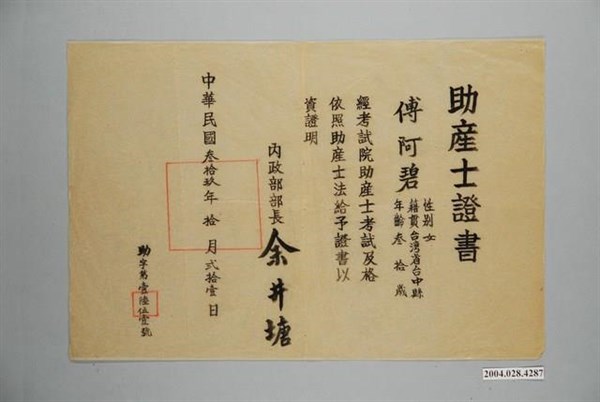 助產士證書
傅阿碧
性别女
籍貫台湾省台中縣
年齡叁拾歲
經考試院助產士考試及格
依照助產士法給予證書以
資證明
內政部部長 余井塘
中華民國叁拾玖年拾月弍拾壹日
助字第壹陸伍壹號
2004.028.4287